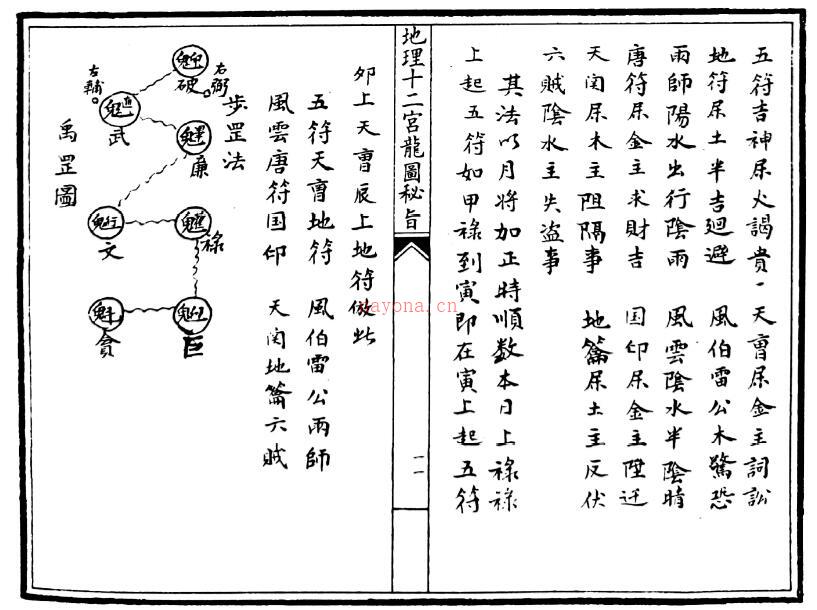 五符吉神屬火謁貴、天曹屬金主詞訟
地符屬土半吉廻避　風伯雷公木驚恐
雨師陽水出行陰雨　風雲陰水半陰晴
唐符屬金主求財吉　国印屬金主陞迁
天関屬木主阻隔事　地籥屬土主反伏
六賊陰水主失盗事
其法以月將加正時順数本日上祿祿
上起五符如甲祿到寅即在寅上起五符
地理十二宮龍圖秘旨
一一
卯上天曹辰上地符倣此
五符天曹地符　風伯雷公雨師
風雲唐符国印　天関地籥六賊
步罡法
右弼
破
左輔
武
廉
禹罡圖
文
祿
貪
巨
nayona.cn